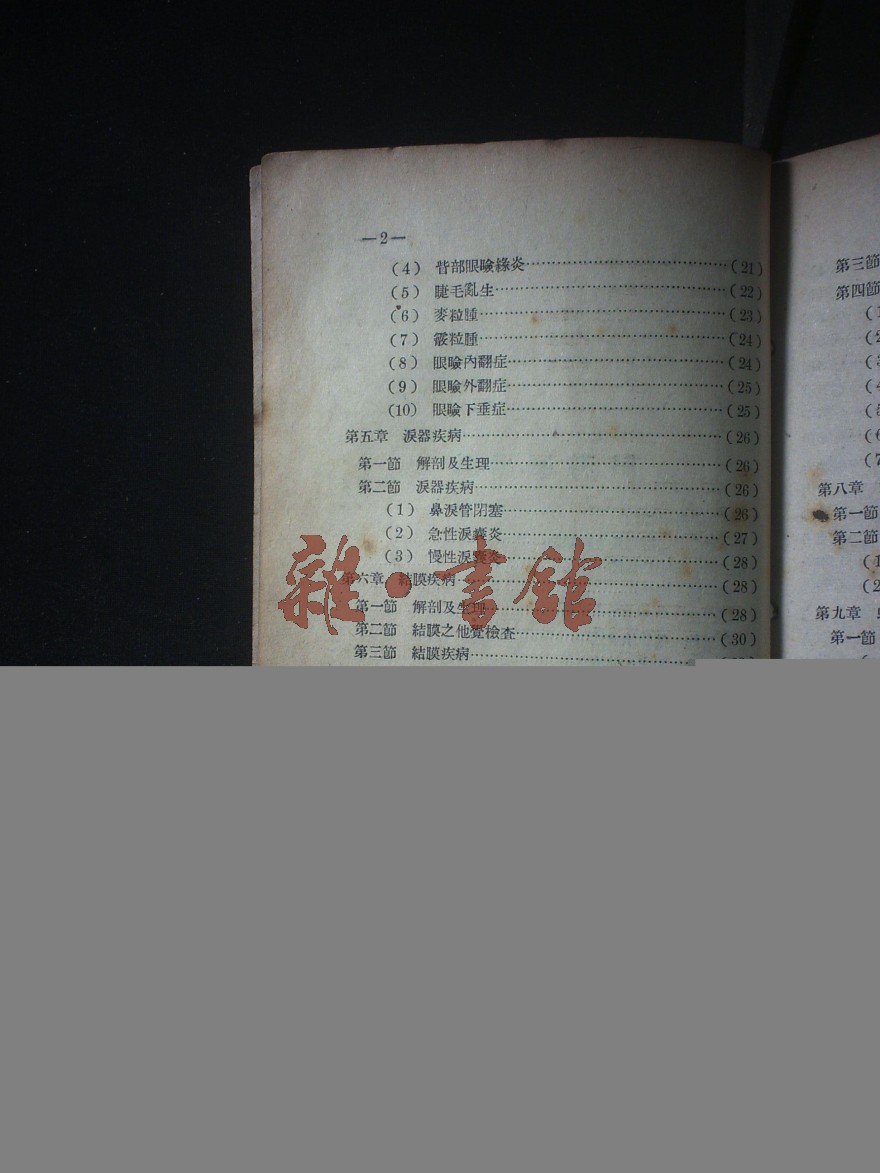 —2—
(4) 眥部眼瞼綠炎…(21)
(5) 睫毛亂生…(22)
(6) 麥粒腫…(23)
(7) 霰粒腫…(24)
(8) 眼瞼內翻症…(24)
(9) 眼瞼外翻症…(25)
(10) 眼瞼下垂症…(25)
第五章 淚器疾病…(26)
第一節 解剖及生理…(26)
第二節 淚器疾病…(26)
(1) 鼻淚管閉塞…(26)
(2) 急性淚囊炎…(27)
(3) 慢性淚囊炎…(28)
第六章 結膜疾病…(28)
第一節 解剖及生理…(28)
第二節 結膜之他覺檢查…(30)
第三節 結膜疾病…
雜·書館
第三節
第四節
(1
(2
(3
(4
(5
(6
(7
第八章
第一節
第二節
(1
(2
第九章
第一節